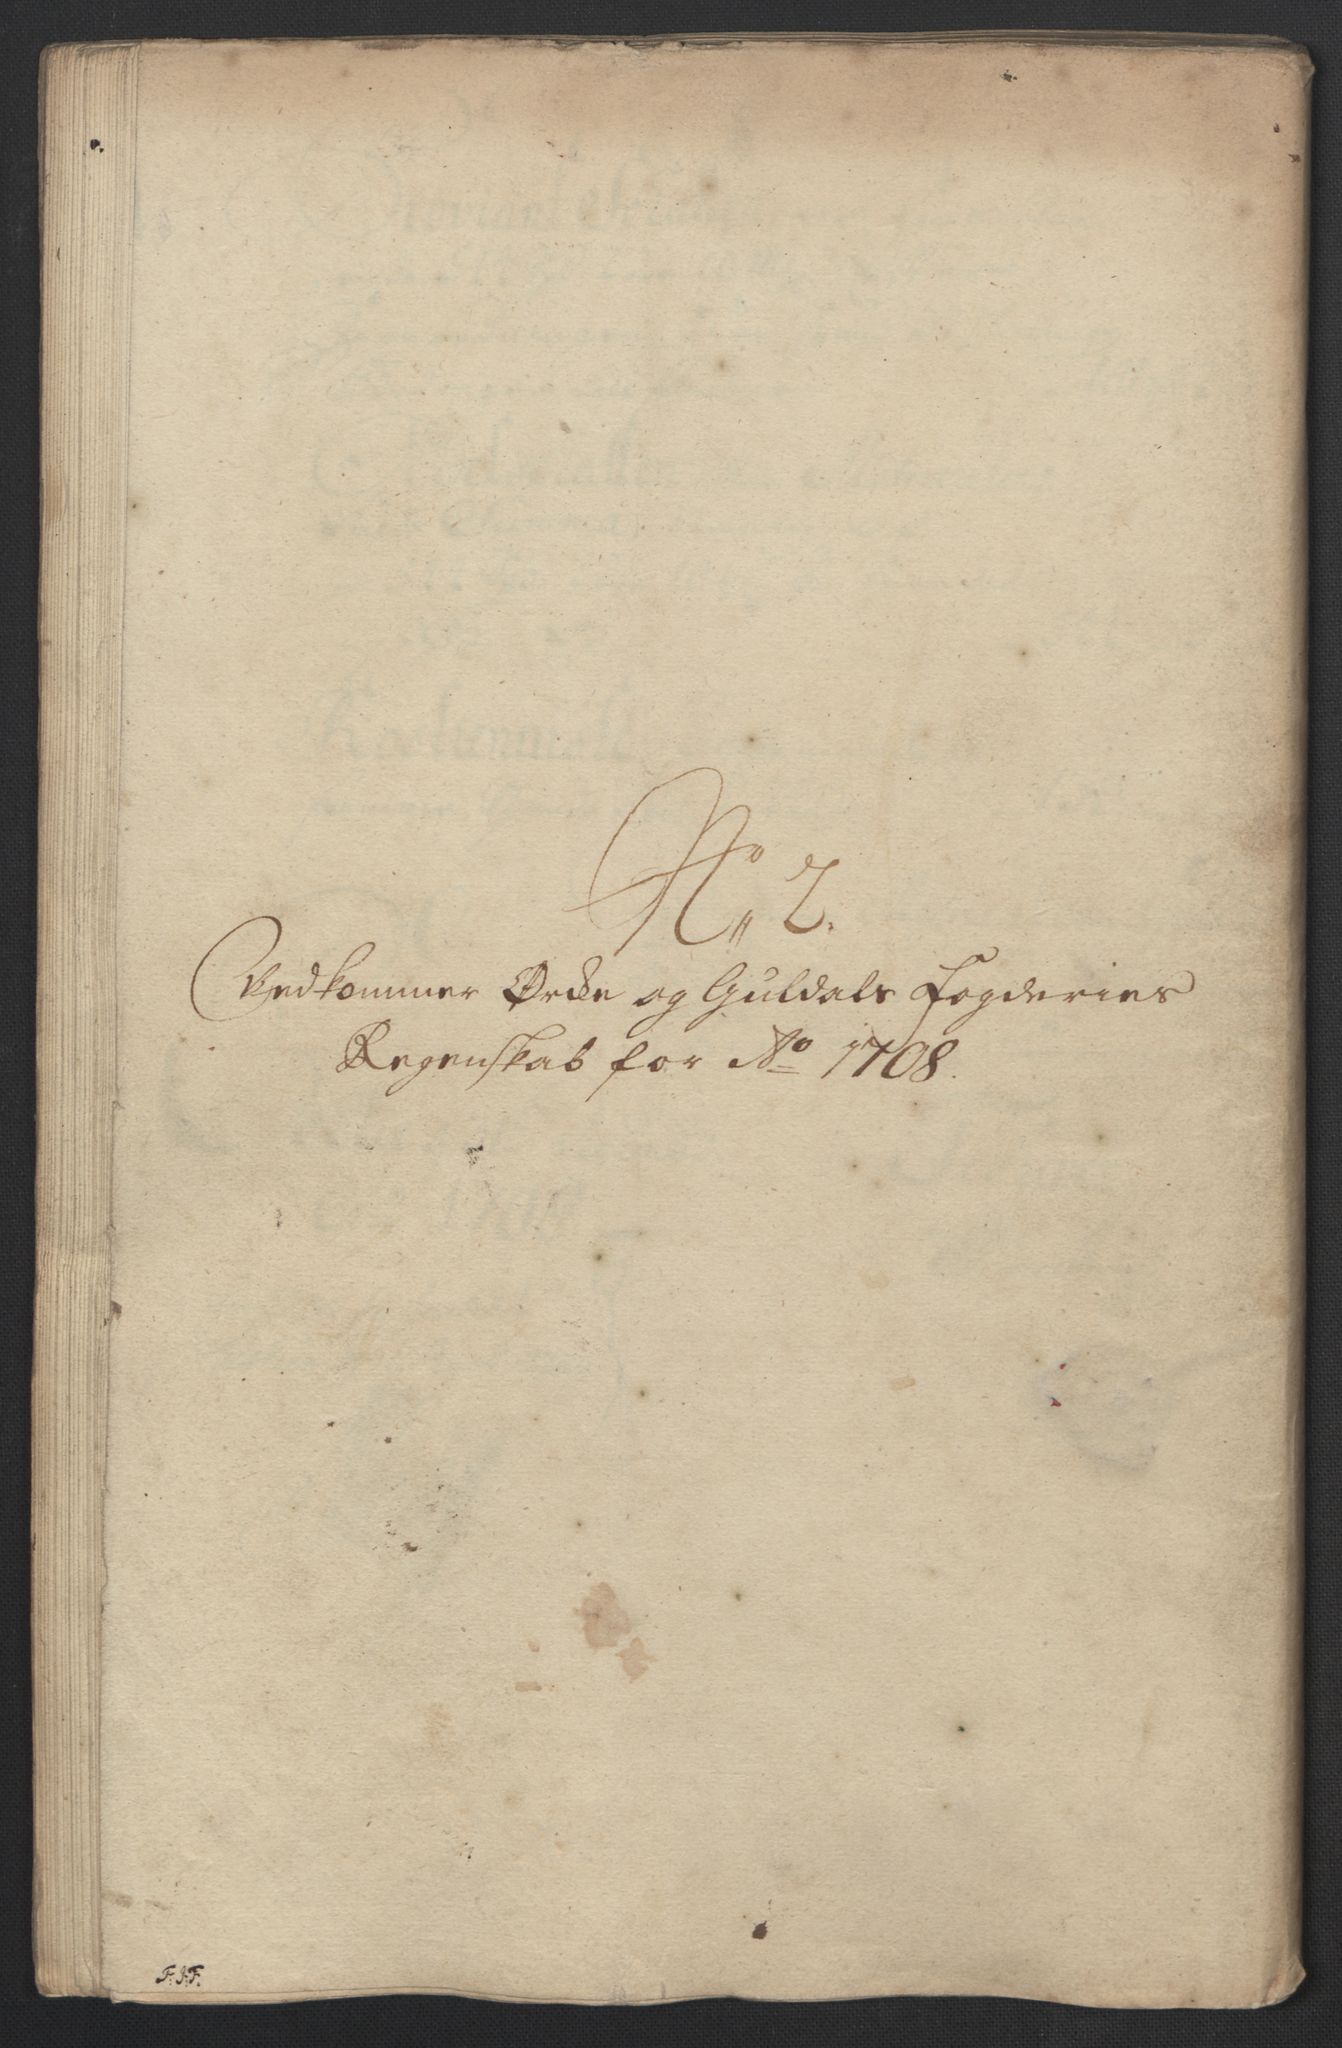 No 2.
Vedkommer Ørcke og Guldals Fogderies
Regenskab for Ao 1708.
F.J.F.